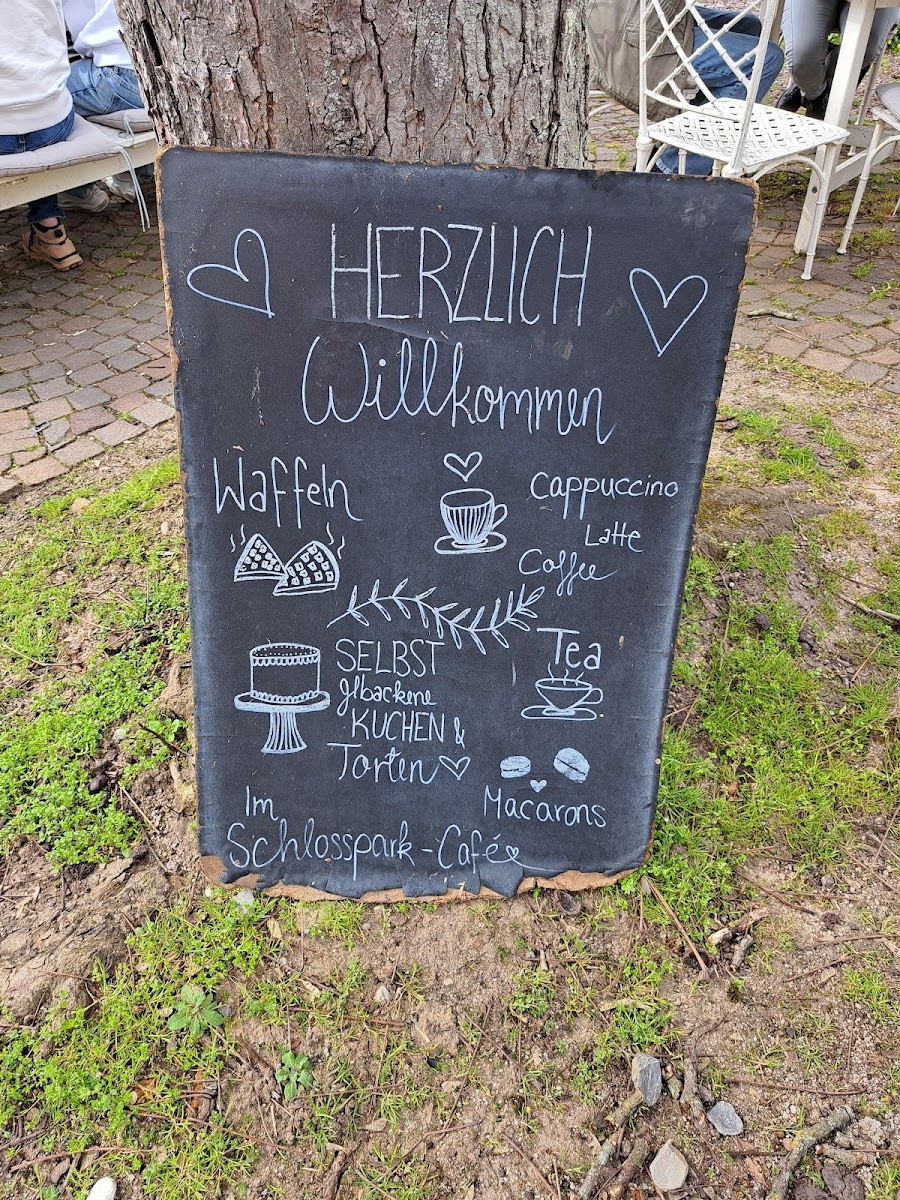 HERZLICH
Willkommen
Waffeln
Cappuccino
Latte
Coffee
SELBST
gebackene
KUCHEN &
Torten
Tea
Macarons
Im
Schlosspark-Café